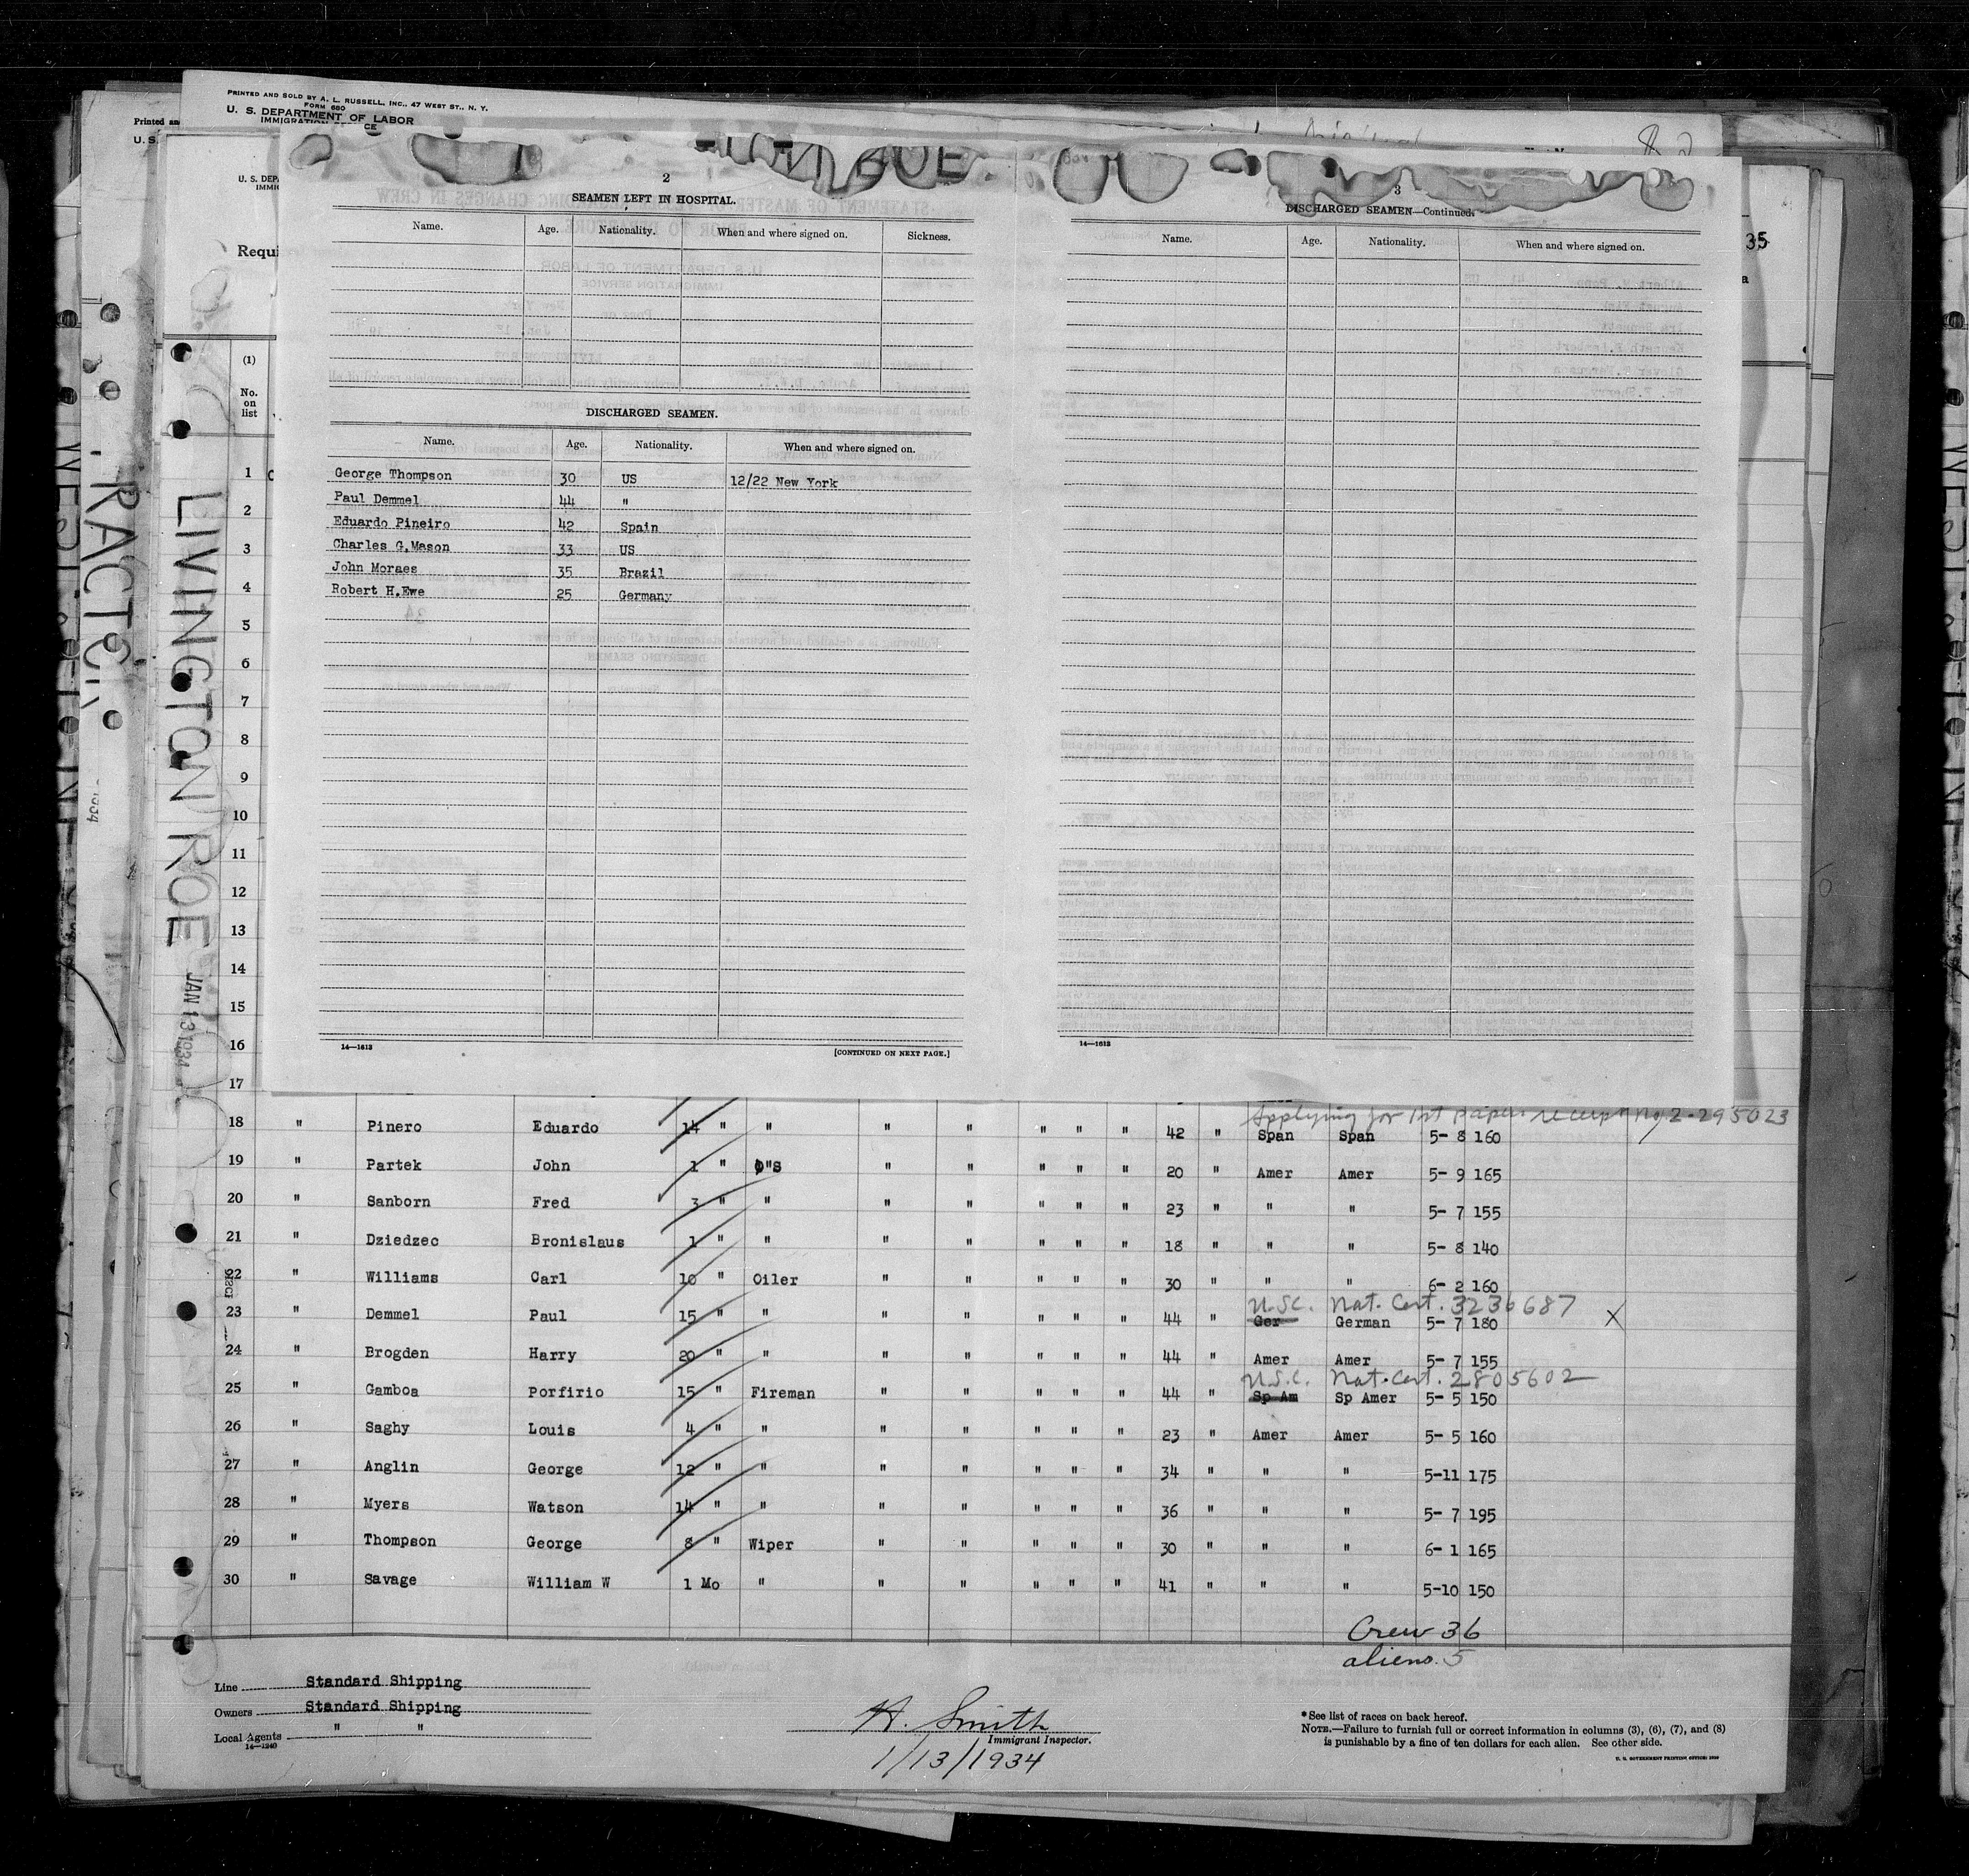 PRINTED AND SOLD BY A. L. RUSSELL, INC., 47 WEST ST., N. Y.
FORM 680
U. S. DEPARTMENT OF LABOR
Printed an
U. S.
U. S. DEP
IMMIG
Requi
35
(1)
No.
on
list
LIVINGTON ROE
JAN 13 1934
2
SEAMEN LEFT IN HOSPITAL.
Name. Age. Nationality. When and where signed on. Sickness.
DISCHARGED SEAMEN.
Name. Age. Nationality. When and where signed on.
George Thompson 30 US 12/22 New York
Paul Demmel 44 "
Eduardo Pineiro 42 Spain
Charles G.Mason 33 US
John Moraes 35 Brazil
Robert H.Ewe 25 Germany
14—1613
[CONTINUED ON NEXT PAGE.]
3
DISCHARGED SEAMEN—Continued.
Name. Age. Nationality. When and where signed on.
14—1613
1
2
3
4
5
6
7
8
9
10
11
12
13
14
15
16
17
Applying for 1st papers receipt No. 2-295023
18 " Pinero Eduardo 14 " " " " " " " 42 " Span Span 5- 8 160
19 " Partek John 1 " O"S " " " " " 20 " Amer Amer 5- 9 165
20 " Sanborn Fred 3 " " " " " " " 23 " " " 5- 7 155
21 " Dziedzec Bronislaus 1 " " " " " " " 18 " " " 5- 8 140
22 " Williams Carl 10 " Oiler " " " " " 30 " " " 6- 2 160
U.S.C. Nat. Cert. 3236687
23 " Demmel Paul 15 " " " " " " " 44 " Ger German 5- 7 180 X
24 " Brogden Harry 20 " " " " " " " 44 " Amer Amer 5- 7 155
U.S.C. Nat. Cert. 2805602
25 " Gamboa Porfirio 15 " Fireman " " " " " 44 " Sp Am Sp Amer 5- 5 150
26 " Saghy Louis 4 " " " " " " " 23 " Amer Amer 5- 5 160
27 " Anglin George 12 " " " " " " " 34 " " " 5-11 175
28 " Myers Watson 14 " " " " " " " 36 " " " 5- 7 195
29 " Thompson George 8 " Wiper " " " " " 30 " " " 6- 1 165
30 " Savage William W 1 Mo " " " " " " 41 " " " 5-10 150
Crew 36
aliens. 5
Line Standard Shipping
Owners Standard Shipping
Local Agents " "
14—1240
H. Smith
Immigrant Inspector.
1/13/1934
*See list of races on back hereof.
NOTE.—Failure to furnish full or correct information in columns (3), (6), (7), and (8)
is punishable by a fine of ten dollars for each alien. See other side.